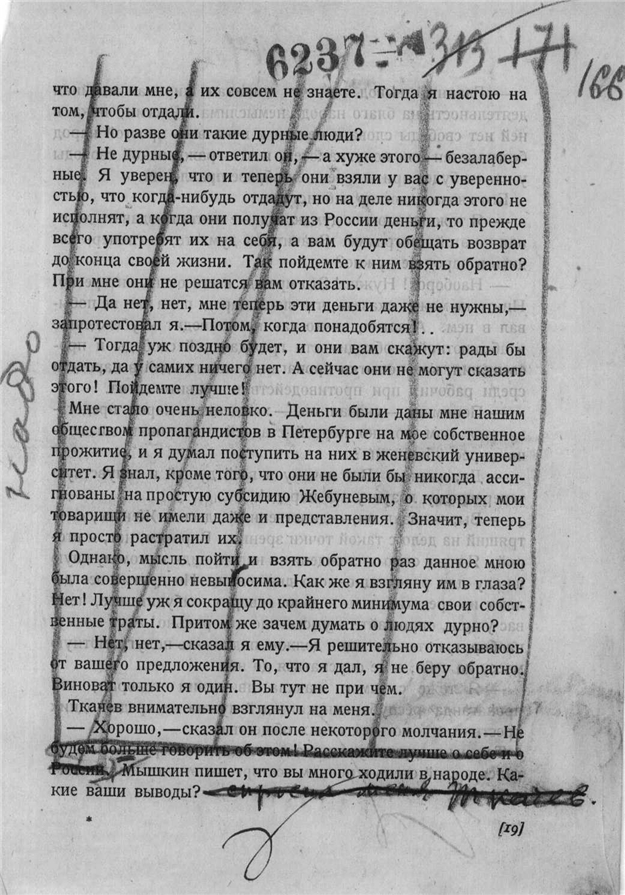 6237
313 171
166
что давали мне, а их совсем не знаете. Тогда я настою на
том, чтобы отдали.
— Но разве они такие дурные люди?
— Не дурные, — ответил он, — а хуже этого — безалабер-
ные. Я уверен, что и теперь они взяли у вас с уверенно-
стью, что когда-нибудь отдадут, но на деле никогда этого не
исполнят, а когда они получат из России деньги, то прежде
всего употребят их на себя, а вам будут обещать возврат
до конца своей жизни. Так пойдемте к ним взять обратно?
При мне они не решатся вам отказать.
— Да нет, нет, мне теперь эти деньги даже не нужны,—
запротестовал я.—Потом, когда понадобятся!..
— Тогда уж поздно будет, и они вам скажут: рады бы
отдать, да у самих ничего нет. А сейчас они не могут сказать
этого! Пойдемте лучше!
надо
Мне стало очень неловко. Деньги были даны мне нашим
обществом пропагандистов в Петербурге на мое собственное
прожитие, и я думал поступить на них в женевский универ-
ситет. Я знал, кроме того, что они не были бы никогда асси-
гнованы на простую субсидию Жебуневым, о которых мои
товарищи не имели даже и представления. Значит, теперь
я просто растратил их.
Однако, мысль пойти и взять обратно раз данное мною
была совершенно невыносима. Как же я взгляну им в глаза?
Нет! Лучше уж я сокращу до крайнего минимума свои собст-
венные траты. Притом же зачем думать о людях дурно?
— Нет, нет,—сказал я ему.—Я решительно отказываюсь
от вашего предложения. То, что я дал, я не беру обратно.
Виноват только я один. Вы тут не при чем.
Ткачев внимательно взглянул на меня.
— Хорошо,—сказал он после некоторого молчания.—Не
будем больше говорить об этом! Расскажите лучше о себе и о
России. Мышкин пишет, что вы много ходили в народе. Ка-
кие ваши выводы? — спросил меня Ткачев.
[19]